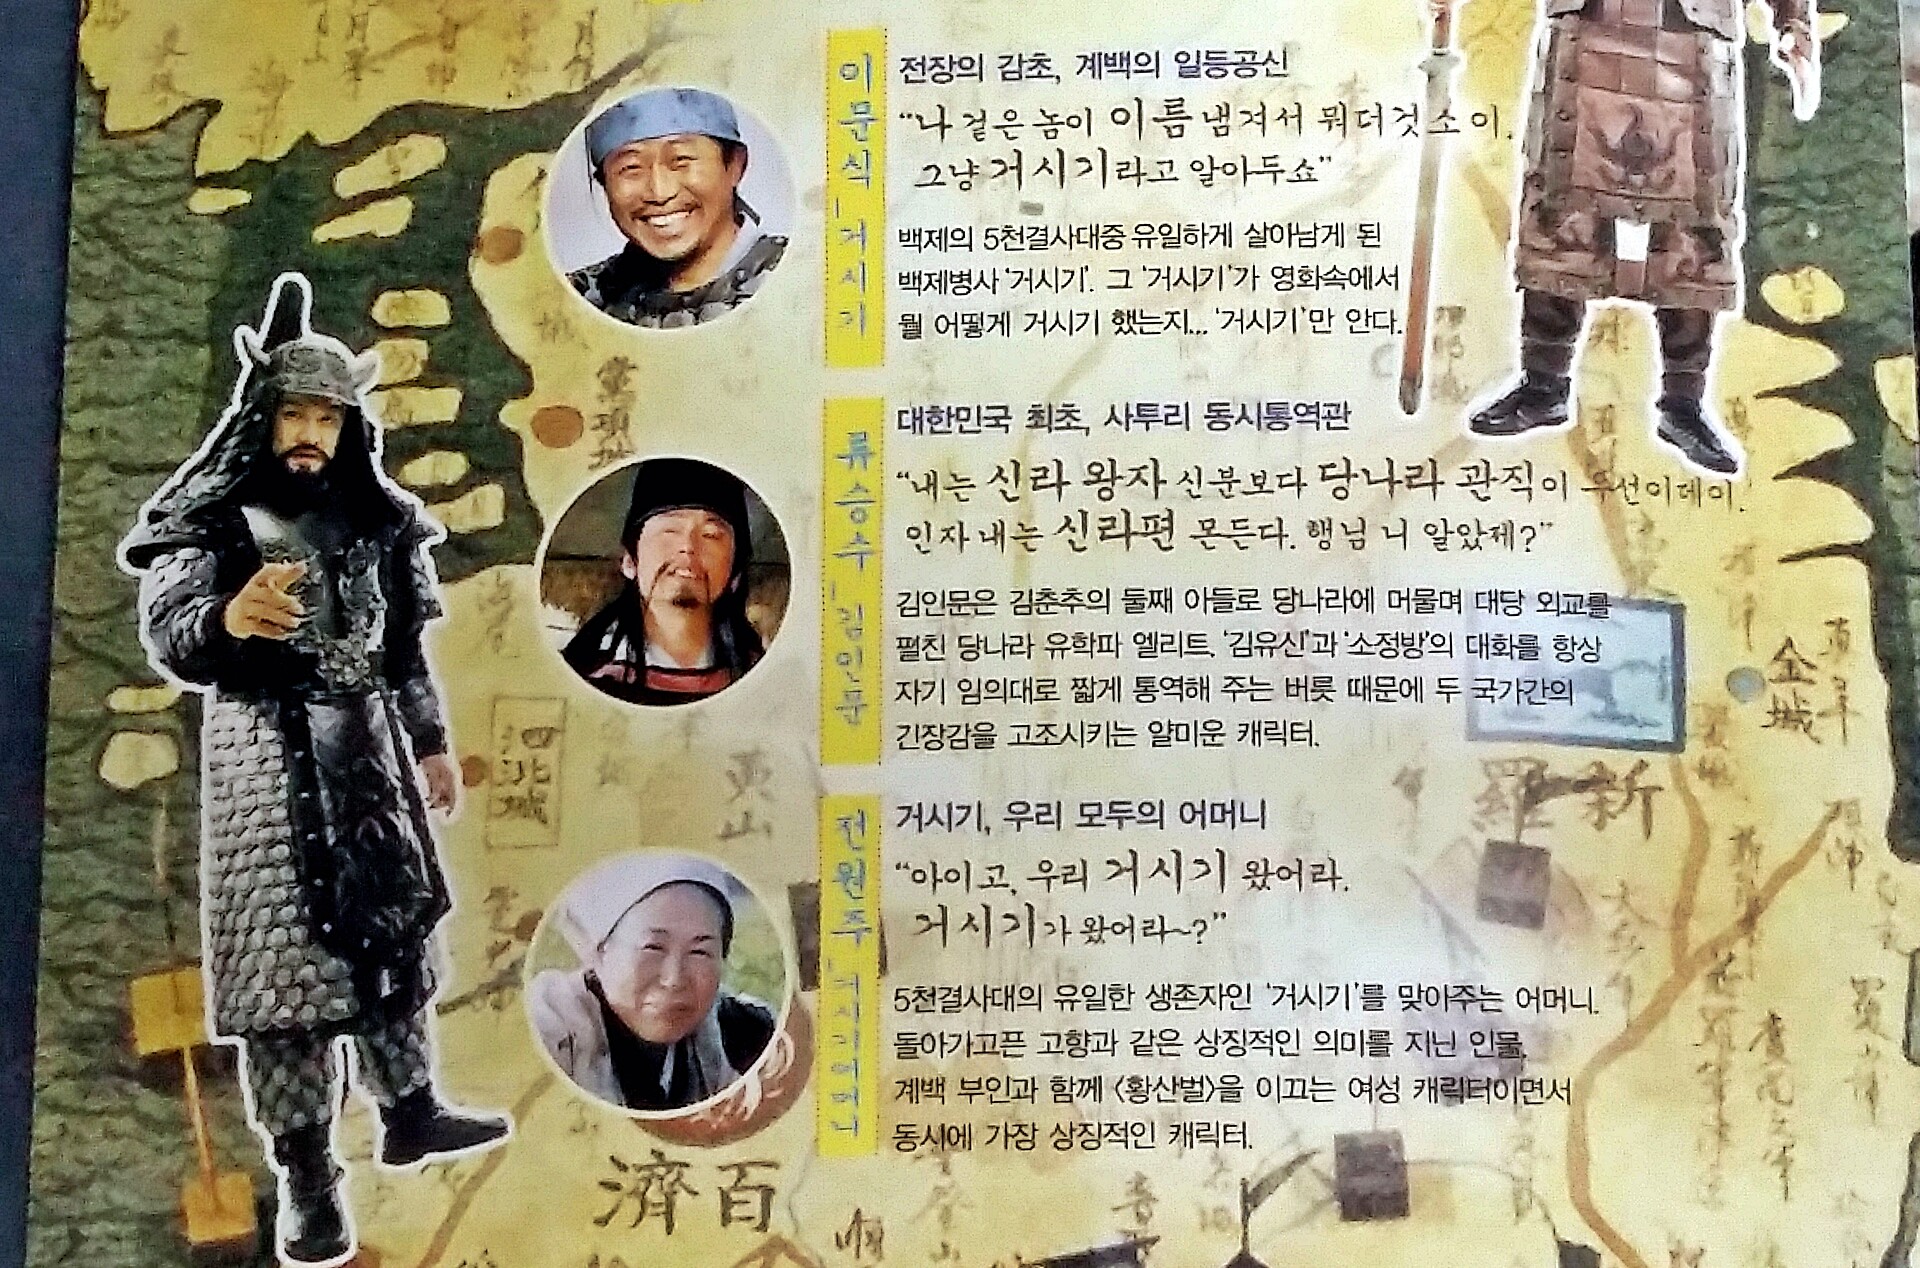 이문식 | 거시기
전장의 감초, 계백의 일등공신
“나 겉은 놈이 이름 냄겨서 뭐더것소이.
그냥 거시기라고 알아두쇼”
백제의 5천결사대중 유일하게 살아남게 된
백제병사 ‘거시기’. 그 ‘거시기’가 영화속에서
뭘 어떻게 거시기 했는지... ‘거시기’만 안다.
류승수 | 김인문
대한민국 최초, 사투리 동시통역관
“내는 신라 왕자 신분보다 당나라 관직이 우선이데이.
인자 내는 신라편 몬든다. 행님 니 알았제?”
김인문은 김춘추의 둘째 아들로 당나라에 머물며 대당 외교를
펼친 당나라 유학파 엘리트. ‘김유신’과 ‘소정방’의 대화를 항상
자기 임의대로 짧게 통역해 주는 버릇 때문에 두 국가간의
긴장감을 고조시키는 얄미운 캐릭터.
전원주 | 거시기어머니
거시기, 우리 모두의 어머니
“아이고, 우리 거시기 왔어라.
거시기가 왔어라~?”
5천결사대의 유일한 생존자인 ‘거시기’를 맞아주는 어머니.
돌아가고픈 고향과 같은 상징적인 의미를 지닌 인물.
계백 부인과 함께 <황산벌>을 이끄는 여성 캐릭터이면서
동시에 가장 상징적인 캐릭터.
党項城
泗沘城
金城
羅新
濟百